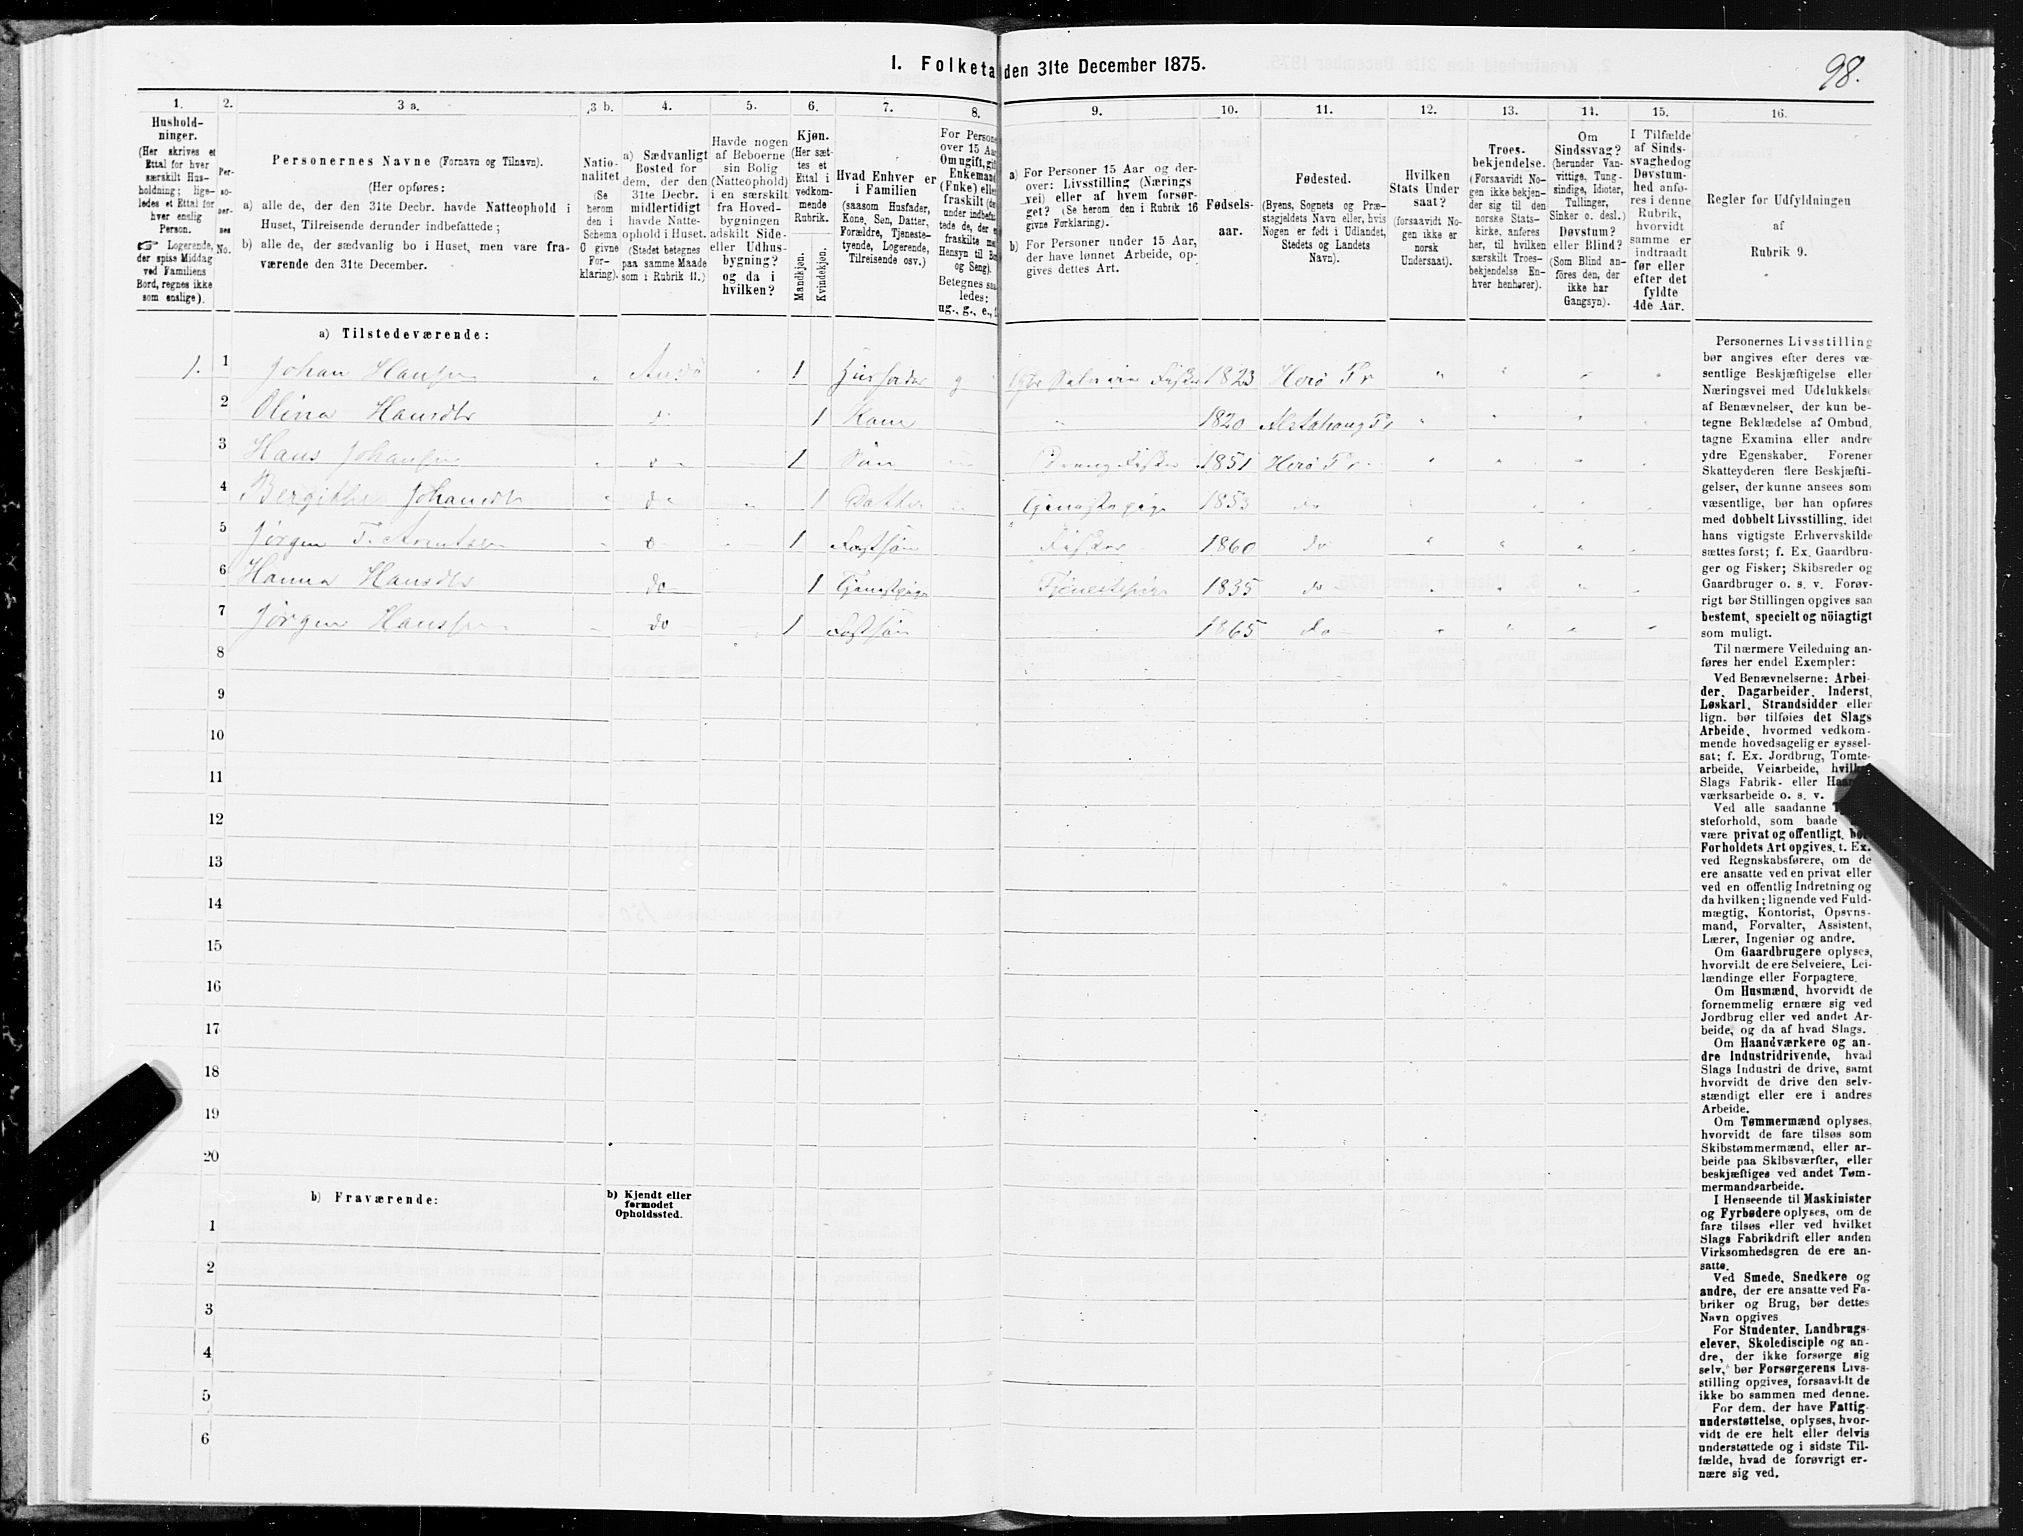 1. Folketa den 31te December 1875.
98.
1. 2. 3 a. 3 b. 4. 5. 6. 7. 8. 9. 10. 11. 12. 13. 14. 15. 16.
Hushold-
ninger.
(Her skrives et
Ettal for hver
særskilt Hus-
holdning; lige-
ledes et Ettal for
hver enslig
Person.
☞ Logerende,
der spise Middag
ved Familiens
Bord, regnes ikke
som enslige).
Per-
so-
ner-
nes
No.
Personernes Navne (Fornavn og Tilnavn).
(Her opføres:
a) alle de, der den 31te Decbr. havde Natteophold i
Huset, Tilreisende derunder indbefattede;
b) alle de, der sædvanlig bo i Huset, men vare fra-
værende den 31te December.
Natio-
nalitet
(Se
herom
den i
Schema
O givne
For-
klaring).
a) Sædvanligt
Bosted for
dem, der den
31te Decbr.
midlertidigt
havde Natte-
ophold i Huset.
(Stedet betegnes
paa samme Maade
som i Rubrik 11.)
Havde nogen
af Beboerne
sin Bolig
(Natteophold)
i en særskilt
fra Hoved-
bygningen
adskilt Side-
eller Udhus-
bygning?
og da i
hvilken?
Kjøn.
(Her sæt-
tes et
Ettal i
vedkom-
mende
Rubrik.
Mandkjøn.
Kvindekjøn.
Hvad Enhver er
i Familien
(saasom Husfader,
Kone, Søn, Datter,
Forældre, Tjeneste-
tyende, Logerende,
Tilreisende osv.)
For Persone
over 15 Aa
Om ugift, gif
Enkemand
(Enke) elle
fraskilt (de
under indbefat
tede de, der e
fraskilte me
Hensyn til Bo
og Seng).
Betegnes saa
ledes:
ug., g., e., f.
a) For Personer 15 Aar og der-
over: Livsstilling (Nærings
vei) eller af hvem forsør-
get? (Se herom den i Rubrik 16
givne Forklaring).
b) For Personer under 15 Aar,
der have lønnet Arbeide, op-
gives dettes Art.
Fødsels-
aar.
Fødested.
(Byens, Sognets og Præ-
stegjeldets Navn eller, hvis
Nogen er født i Udlandet,
Stedets og Landets
Navn).
Hvilken
Stats Under
saat?
(forsaavidt No-
gen ikke er
norsk
Undersaat).
Troes-
bekjendelse.
(Forsaavidt No-
gen ikke bekjen-
der sig til den
norske Stats-
kirke, anføres
her, til hvilken
særskilt Troes-
bekjendelse En-
hver henhører).
Om
Sindssvag?
(herunder Van-
vittige, Tung-
sindige, Idioter,
Tullinger,
Sinker o. desl.)
Døvstum?
eller Blind?
(Som Blind an-
føres den, der
ikke har
Gangsyn).
I Tilfælde
af Sinds-
svaghed og
Døvstum-
hed anfø-
res i denne
Rubrik,
hvorvidt
samme er
indtraadt
før eller
efter det
fyldte
4de Aar.
Regler for Udfyldningen
af
Rubrik 9.
a) Tilstedeværende:
1. 1 Johan Hansen 1 Husfader g Fisker 1823 Herø Pr
2 Olina Hansdtr 1 Kone 1820 Alstahoug Pr
3 Hans Johansen 1 Søn Fisker 1851 Herø Pr
4 Bergithe Johansdtr do 1 Datter Tjenestepige 1853 do
5 Jørgen F. Arentsen 1 Fostsøn Fisker 1860 do
6 Hanna Hansdtr do 1 Tjenestpige Tjenestepige 1835 do
7 Jørgen Hansen do 1 Fostsøn 1865 do
8
9
10
11
12
13
14
15
16
17
18
19
20
b) Fraværende:
b) Kjendt eller
formodet
Opholdssted.
1
2
3
4
5
6
Personernes Livsstilling
bør angives efter deres væ-
sentlige Beskjæftigelse eller
Næringsvei med Udelukkelse
af Benævnelser, der kun be-
tegne Beklædelse af Ombud,
tagne Examina eller andre
ydre Egenskaber. Forener
Skatteyderen flere Beskjæfti-
gelser, der kunne ansees som
væsentlige, bør han opføres
med dobbelt Livsstilling, idet
hans vigtigste Erhvervskilde
sættes først; f. Ex. Gaardbru-
ger og Fisker; Skibsreder og
Gaardbruger o. s. v. Forøv-
rigt bør Stillingen opgives saa
bestemt, specielt og nöiagtigt
som muligt.
Til nærmere Veiledning an-
føres her endel Exempler:
Ved Benævnelserne: Arbei-
der, Dagarbeider, Inderst,
Løskarl, Strandsidder eller
lign. bør tilføies det Slags
Arbeide, hvormed vedkom-
mende hovedsagelig er syssel-
sat; f. Ex. Jordbrug, Tomte-
arbeide, Veiarbeide, hvilket
Slags Fabrik- eller Haand-
værksarbeide o. s. v.
Ved alle saadanne
steforhold, som baade
være privat og offentligt, bør
Forholdets Art opgives, t. Ex.
ved Regnskabsførere, om de
ere ansatte ved en privat eller
ved en offentlig Indretning og
da hvilken; lignende ved Fuld-
mægtig, Kontorist, Opsyns-
mand, Forvalter, Assistent,
Lærer, Ingeniør og andre.
Om Gaardbrugere oplyses,
hvorvidt de ere Selveiere, Lei-
lændinge eller Forpagtere.
Om Husmænd, hvorvidt de
fornemmelig ernære sig ved
Jordbrug eller ved andet Ar-
beide, og da af hvad Slags.
Om Haandværkere og an-
dre Industridrivende, hvad
Slags Industri de drive, samt
hvorvidt de drive den selv-
stændigt eller ere i andres
Arbeide.
Om Tømmermænd oplyses,
hvorvidt de fare tilsøs som
Skibstømmermænd, eller ar-
beide paa Skibsværfter, eller
beskjæftiges ved andet Tøm-
mermandsarbeide.
I Henseende til Maskinister
og Fyrbødere oplyses, om de
fare tilsøs eller ved hvilket
Slags Fabrikdrift eller anden
Virksomhedsgren de ere an-
satte.
Ved Smede, Snedkere og
andre, der ere ansatte ved Fa-
briker og Brug, bør dettes
Navn opgives
For Studenter, Landbrugs-
elever, Skoledisciple og an-
dre, der ikke forsørge sig
selv, bør Forsørgerens Livs-
stilling opgives, forsaavidt de
ikke bo sammen med denne.
For dem, der have Fattig-
understøttelse, oplyses, hvor-
vidt de ere helt eller delvis
understøttede og i sidste Til-
fælde, hvad de forøvrigt er-
nære sig ved.